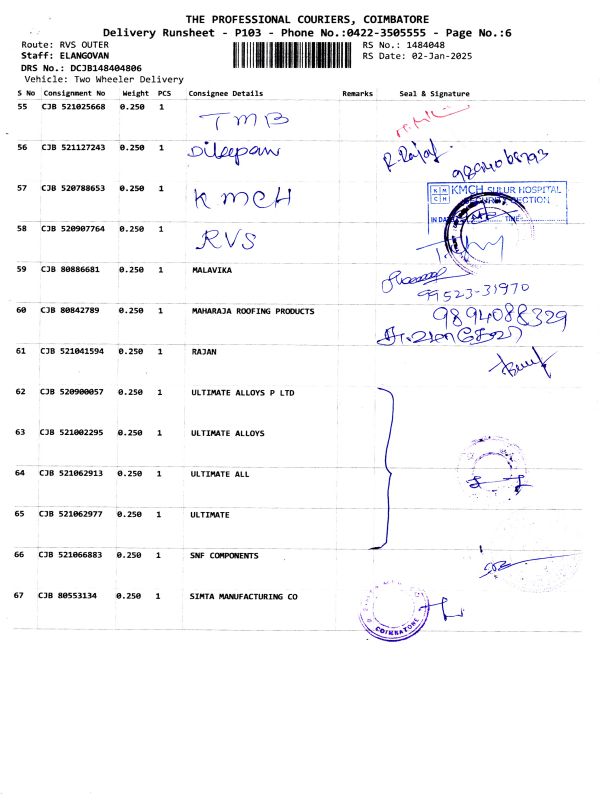 THE PROFESSIONAL COURIERS, COIMBATORE
Delivery Runsheet - P103 - Phone No.:0422-3505555 - Page No.:6
Route: RVS OUTER RS No.: 1484048
Staff: ELANGOVAN RS Date: 02-Jan-2025
DRS No.: DCJB148404806
Vehicle: Two Wheeler Delivery
S No Consignment No Weight PCS Consignee Details Remarks Seal & Signature
55 CJB 521025668 0.250 1 TMB
56 CJB 521127243 0.250 1 Dileepan R.Rajaj
57 CJB 520788653 0.250 1 KMCH KMCH SULUR HOSPITAL
SECURITY SECTION
58 CJB 520907764 0.250 1 RVS
59 CJB 80886681 0.250 1 MALAVIKA
99523-31970
60 CJB 80842789 0.250 1 MAHARAJA ROOFING PRODUCTS 9894088329
61 CJB 521041594 0.250 1 RAJAN
62 CJB 520900057 0.250 1 ULTIMATE ALLOYS P LTD
63 CJB 521002295 0.250 1 ULTIMATE ALLOYS
64 CJB 521062913 0.250 1 ULTIMATE ALL
65 CJB 521062977 0.250 1 ULTIMATE
66 CJB 521066883 0.250 1 SNF COMPONENTS
67 CJB 80553134 0.250 1 SIMTA MANUFACTURING CO
COIMBATORE